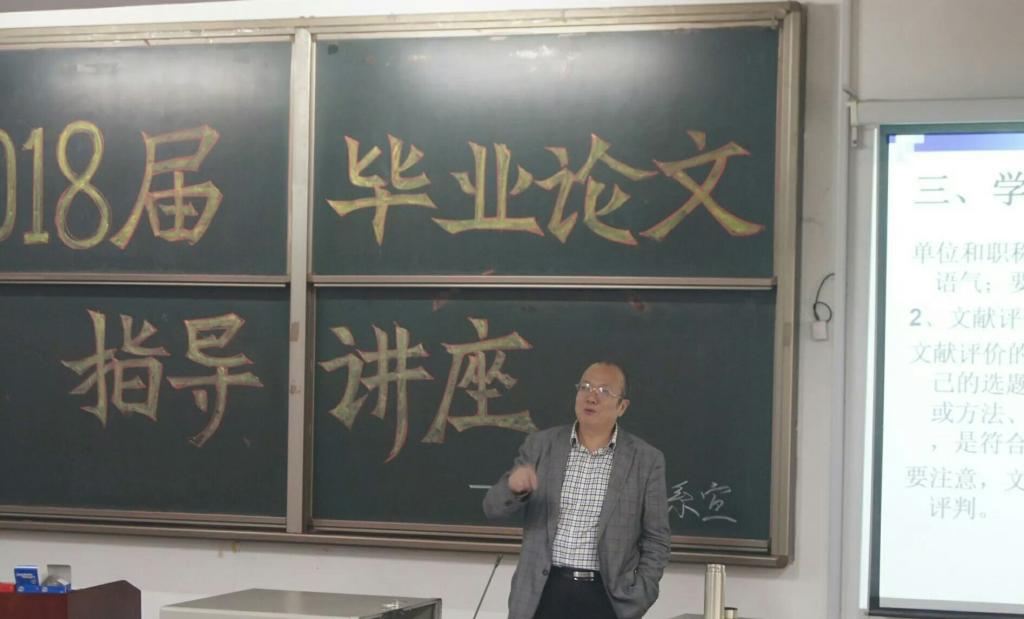 018届 毕业论文
指导 讲座
系宣
三、学
单位和职称
语气；要
2、文献评
文献评价的
己的选题
或方法、
，是符合
要注意，文
评判。